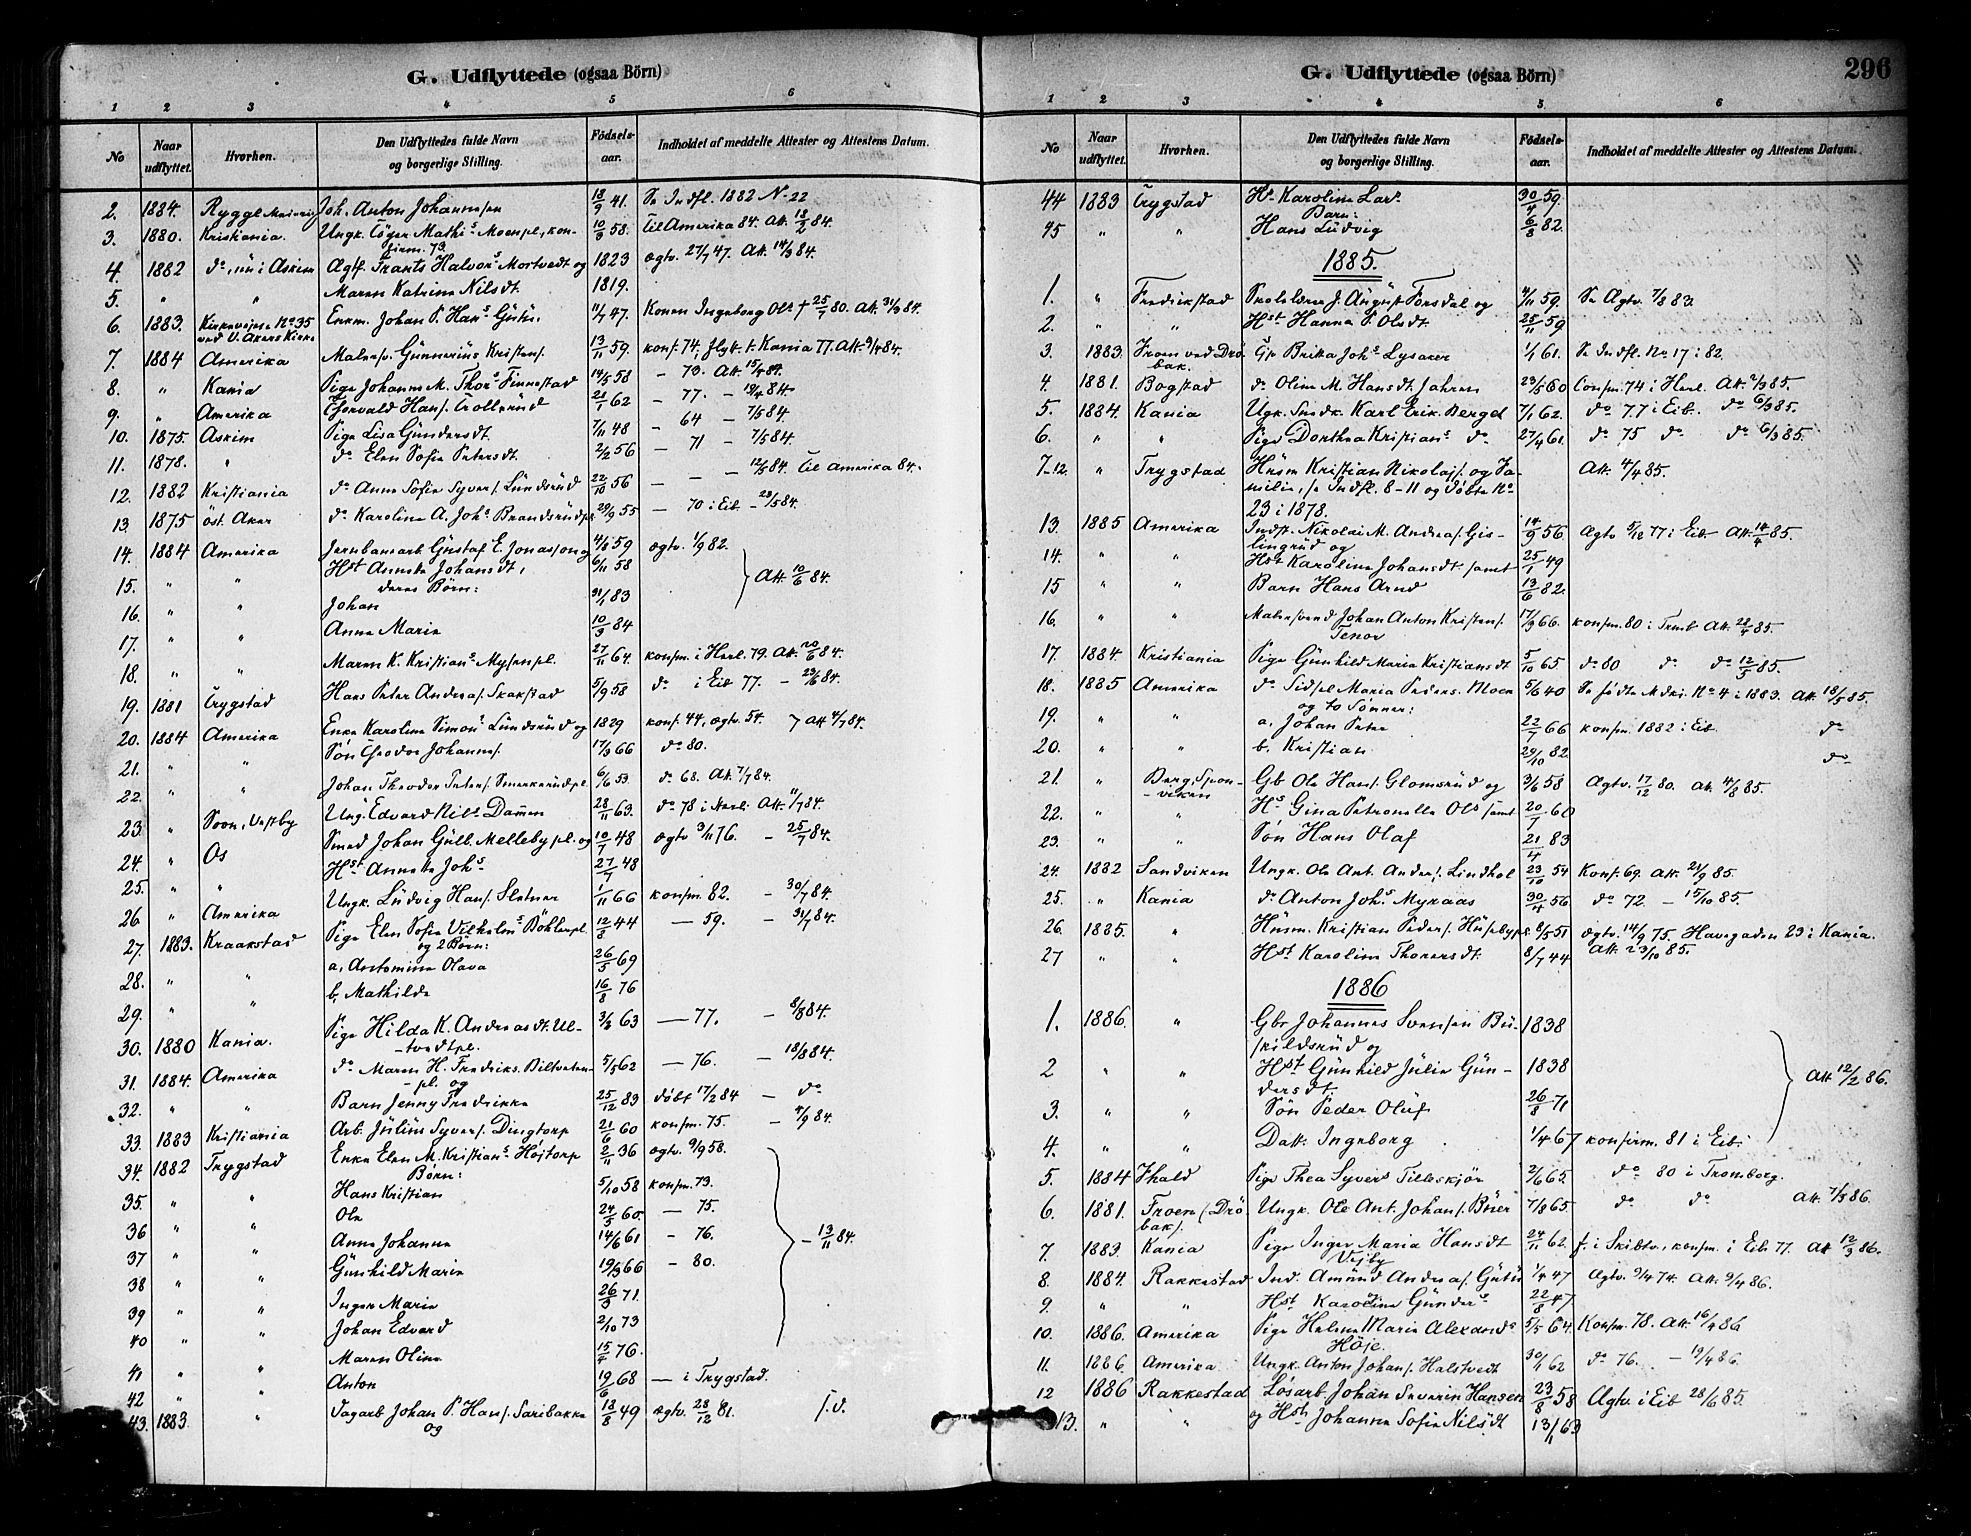 G. Udflyttede (ogsaa Börn)
1 2 3 4 5 6
No Naar udflyttet. Hvorhen. Den Udflyttedes fulde Navn og borgerlige Stilling. Fødselsaar. Indholdet af meddelte Attester og Attestens Datum.
2. 1884. Rygge Joh. Anton Johannesen 18/9 41. Se Indfl. 1882 N- 22
3. 1880. Kristiania. Ungk. Mathis Moenpl., kon- 10/3 58. Til Amerika 84. Att. 18/2 84.
firm. 73.
4. 1882 do, nu i Askim Agtf. Frants Halvors Mortvedt og 1823 ægtv. 27/7 47. Att. 14/3 84.
5. " " Maren Katrine Nilsdt. 1819.
6. 1883. Kirkevejen No 35 Enkm. Johan P. Hans 11/7 47. Konen Ingeborg Ols † 25/7 80. Att. 31/3 84.
ved V. Akers Kirke
7. 1884 Amerika Malersv. Gunnerius Kristens. 13/11 59. konf. 74, flyt. t. Kania 77. Att. 9/4 84.
8. " Kania Pige Johanne M. Thors Finnestad 14/5 58 — 73. Att. 15/4 84.
9. " Amerika Thorvald Hans. Trollerud 21/1 62 — 77. — 19/4 84.
10. 1875. Askim Pige Lisa Gundersdt. 7/11 48 — 64 — 7/5 84.
11. 1878. " do Elen Sofie Petersdt. 2/2 56 — 71 — 7/5 84.
12. 1882 Kristiania do Anne Sofie Syvers. Lundsrud 22/10 56 — — — 12/5 84. Til Amerika 84.
13. 1875 öst. Aker do Karoline A. Johs Brandsrudpl. 29/9 55 — 70 i Eib. — 23/5 84.
14. 1884 Amerika Jernbanearb Gustaf E. Jonasson og 4/8 59 ægtv. 1/9 82.
15. " " Hst Annette Johansdt, 6/11 58 Att. 10/6 84.
deres Börn:
16. " " Johan 31/1 83
17. " " Anne Marie 10/3 84
18. " " Maren K. Kristians Mysenpl. 27/11 64. konfm. i Herl. 79. Att. 20/6 84.
19. 1881 Trygstad Hans Peter Andreas. Skakstad 5/9 58 do i Eib 77. — 23/6 84.
20. 1884 Amerika Enke Karoline Simons Lundsrud og 1829 konf. 44, ægtv. 54. 7 Att 4/7 84.
21. " " Søn Theodor Johannes. 17/3 66 do 80.
22. " " Johan Theodor Peters. Smerkerudpl. 6/6 53 do 68. Att. 7/7 84.
23 " Soon, Vestby Ung. Edvard Nils Dammen 28/11 63. do 78 i Herl. Att. 11/7 84.
24. " Os Smed Johan Gulb. Mellebypl. og 10/7 48 ægtv 3/11 76. — 25/7 84.
25. " " Hst Annette Johs 27/7 48
26. " Amerika Ungk. Ludvig Hans. Sletner 1/11 66 konfm. 82. — 30/7 84.
27. 1883. Kraakstad Pige Elen Sofie Vilhelms Böhlerpl. 12/8 44 — 59. — 31/7 84.
og 2 Börn:
28. " " a, Antomine Olava 26/5 69
29. " " b, Mathilde 16/8 76
30. 1880 Kania. Pige Hilda K. Andreasdt. Ul- 3/2 63 — 77. — 8/8 84.
-tvedtpl.
31. 1884. Amerika do Maren H. Fredriks. Biltveten- 5/5 62 — 76. — 18/8 84.
-pl. og
32. " " Barn Jenny Fredrikke 25/12 83 döbt 17/2 84 — do
33. 1883 Kristiania Arb. Julius Syvers. Dingtorp 21/6 60 konfm. 75. — 4/9 84.
34. 1882 Trygstad Enke Elen M. Kristians Højtorp 2/11 36 ægtv. 9/9 58.
Börn:
35. " " Hans Kristian 5/10 58 konfm. 73.
36 " " Ole 24/5 60. — 75.
37 " " Anne Johanne 14/6 61 — 76. — 13/11 84.
38 " " Gunhild Marie 19/3 66 — 80.
39 " " Inger Marie 26/3 71.
40 " " Johan Edvard 2/10 73
41 " " Maren Oline 15/4 76.
42 " " Anton 19/6 68 — i Trygstad.
43. 1883. " Dagarb Johan P. Hans. Saribakke 18/8 49 ægtv. 28/12 81. s.d.
og
G. Udflyttede (ogsaa Börn) 296
1 2 3 4 5 6
No Naar udflyttet. Hvorhen. Den Udflyttedes fulde Navn og borgerlige Stilling. Fødselsaar. Indholdet af meddelte Attester og Attestens Datum.
44 1883 Trygstad Hs. Karoline Lars 30/4 59.
Barn:
45 " " Hans Ludvig 6/8 82.
1885.
1. " Fredrikstad Skolelærer J. August Torsdal og 4/11 59. Se Agtv. 7/8 83.
2. " " Hst Hanna P. Olsdt. 25/11 59
3. 1883. From ved Drö- Gp Brika Johs Lysaker 1/1 61. Se Indfl. No 17 i 82.
bak.
4. 1881. Bogstad do Oline M. Hansdt. Jahren 23/5 60 Confm. 74 i Herl. Att. 2/3 85.
5. 1884. Kania Ugk. Smdk. Karl Erik. Berget 7/1 62. do 77 i Eib. do 6/3 85.
6. " " Pige Dorthea Kristians do 27/4 61. do 75 do do 6/3 85.
7-12. " Trygstad Husm Kristian Nikolajs. og Fa- Att. 4/4 85.
milie, se Indfl. 8-11 og döbte No
23 i 1878.
13. 1885 Amerika Indst. Nikolai M. Andreas. Gis- 14/9 56 Agtv 5/12 77 i Eib. Att. 14/4 85.
lingrud og
14. " " Hst Karoline Johansdt samt 25/1 49
15 " " Barn Hans Arnd 13/6 82.
16. " " Malersvend Johan Anton Kristens. 17/3 66. konfm. 80 i Tromb Att. 28/4 85.
Tenor
17. 1884. Kristiania Pige Gunhild Maria Kristiansdt 5/10 65 do 80 do do 12/5 85.
18. 1885 Amerika do Sidsel Maria Peders. Moen 5/6 40 Se födte Mdkj. No 4 i 1883. Att. 18/5 85.
og to Sønner:
19. " " a, Johan Peter 22/7 66 konfm. 1882 i Eib. do
20. " " b, Kristian 29/10 82. do
21. " Berg, Spon- Gb Ole Hans. Glomsrud og 3/6 58 Agtv. 17/12 80. Att. 4/8 85.
-viken
22. " " Hs Gina Petronella Ols samt 20/7 60
23. " " Søn Hans Olaf 21/4 83
24. 1882 Sandviken Ungk. Ole Ant. Anders. Lindhol 23/10 54 Konf. 69. Att. 21/9 85.
25. " Kania do Anton Johs. Myraas 30/4 56. do 72 — 15/10 85.
26. 1885. " Husm. Kristian Peders. Husebypl. 8/5 51 ægtv. 14/9 75. Havegaden 23 i Kania.
27 " " Hst Karoline Thorersdt. 8/7 44 Att. 23/10 85.
1886
1. 1886. " Gbr Johannes Svensen Bu- 1838
skildsrud og
2 " " Hst Gunhild Julie Gun- 1838 Att 12/2 86.
dersdt.
3. " " Søn Peder Oluf 26/8 71
4. " " Datt. Ingeborg 1/4 67 konfirm. 81 i Eib.
5. 1884 Fhald Pige Thea Syvers Tilleskjør 2/6 65. do 80 i Tromborg.
6. 1881. Froen (Drö- Ungk. Ole Ant. Johans. Buer 7/8 65. do do Att. 7/3 86.
bak).
7. 1883. Kania Pige Inger Maria Hansdt 24/11 62. f. i Skibtv., konfm. i Eib. 77. Att 12/3 86.
Vejby
8. 1884. Rakkestad Ind. Amund Andreas. 1/4 47 Agtv. 9/4 74. Att. 9/4 86.
9. " " Hst Karoline Gunders 22/8 47
10. 1886. Amerika Pige Helene Maria Alexands 5/5 64. Konfm. 78. Att. 16/4 86
Höje.
11. 1886 Amerika. Ungk. Anton Johans. Halstvedt 30/1 62 do 76. — 19/4 86.
12 1886 Rakkestad Løsarb. Johan Severin Hansen 23/8 58 Agtv. i Eib 28/6 85.
13. " " og Hst Johanne Sofie Nilsdt 13/11 63